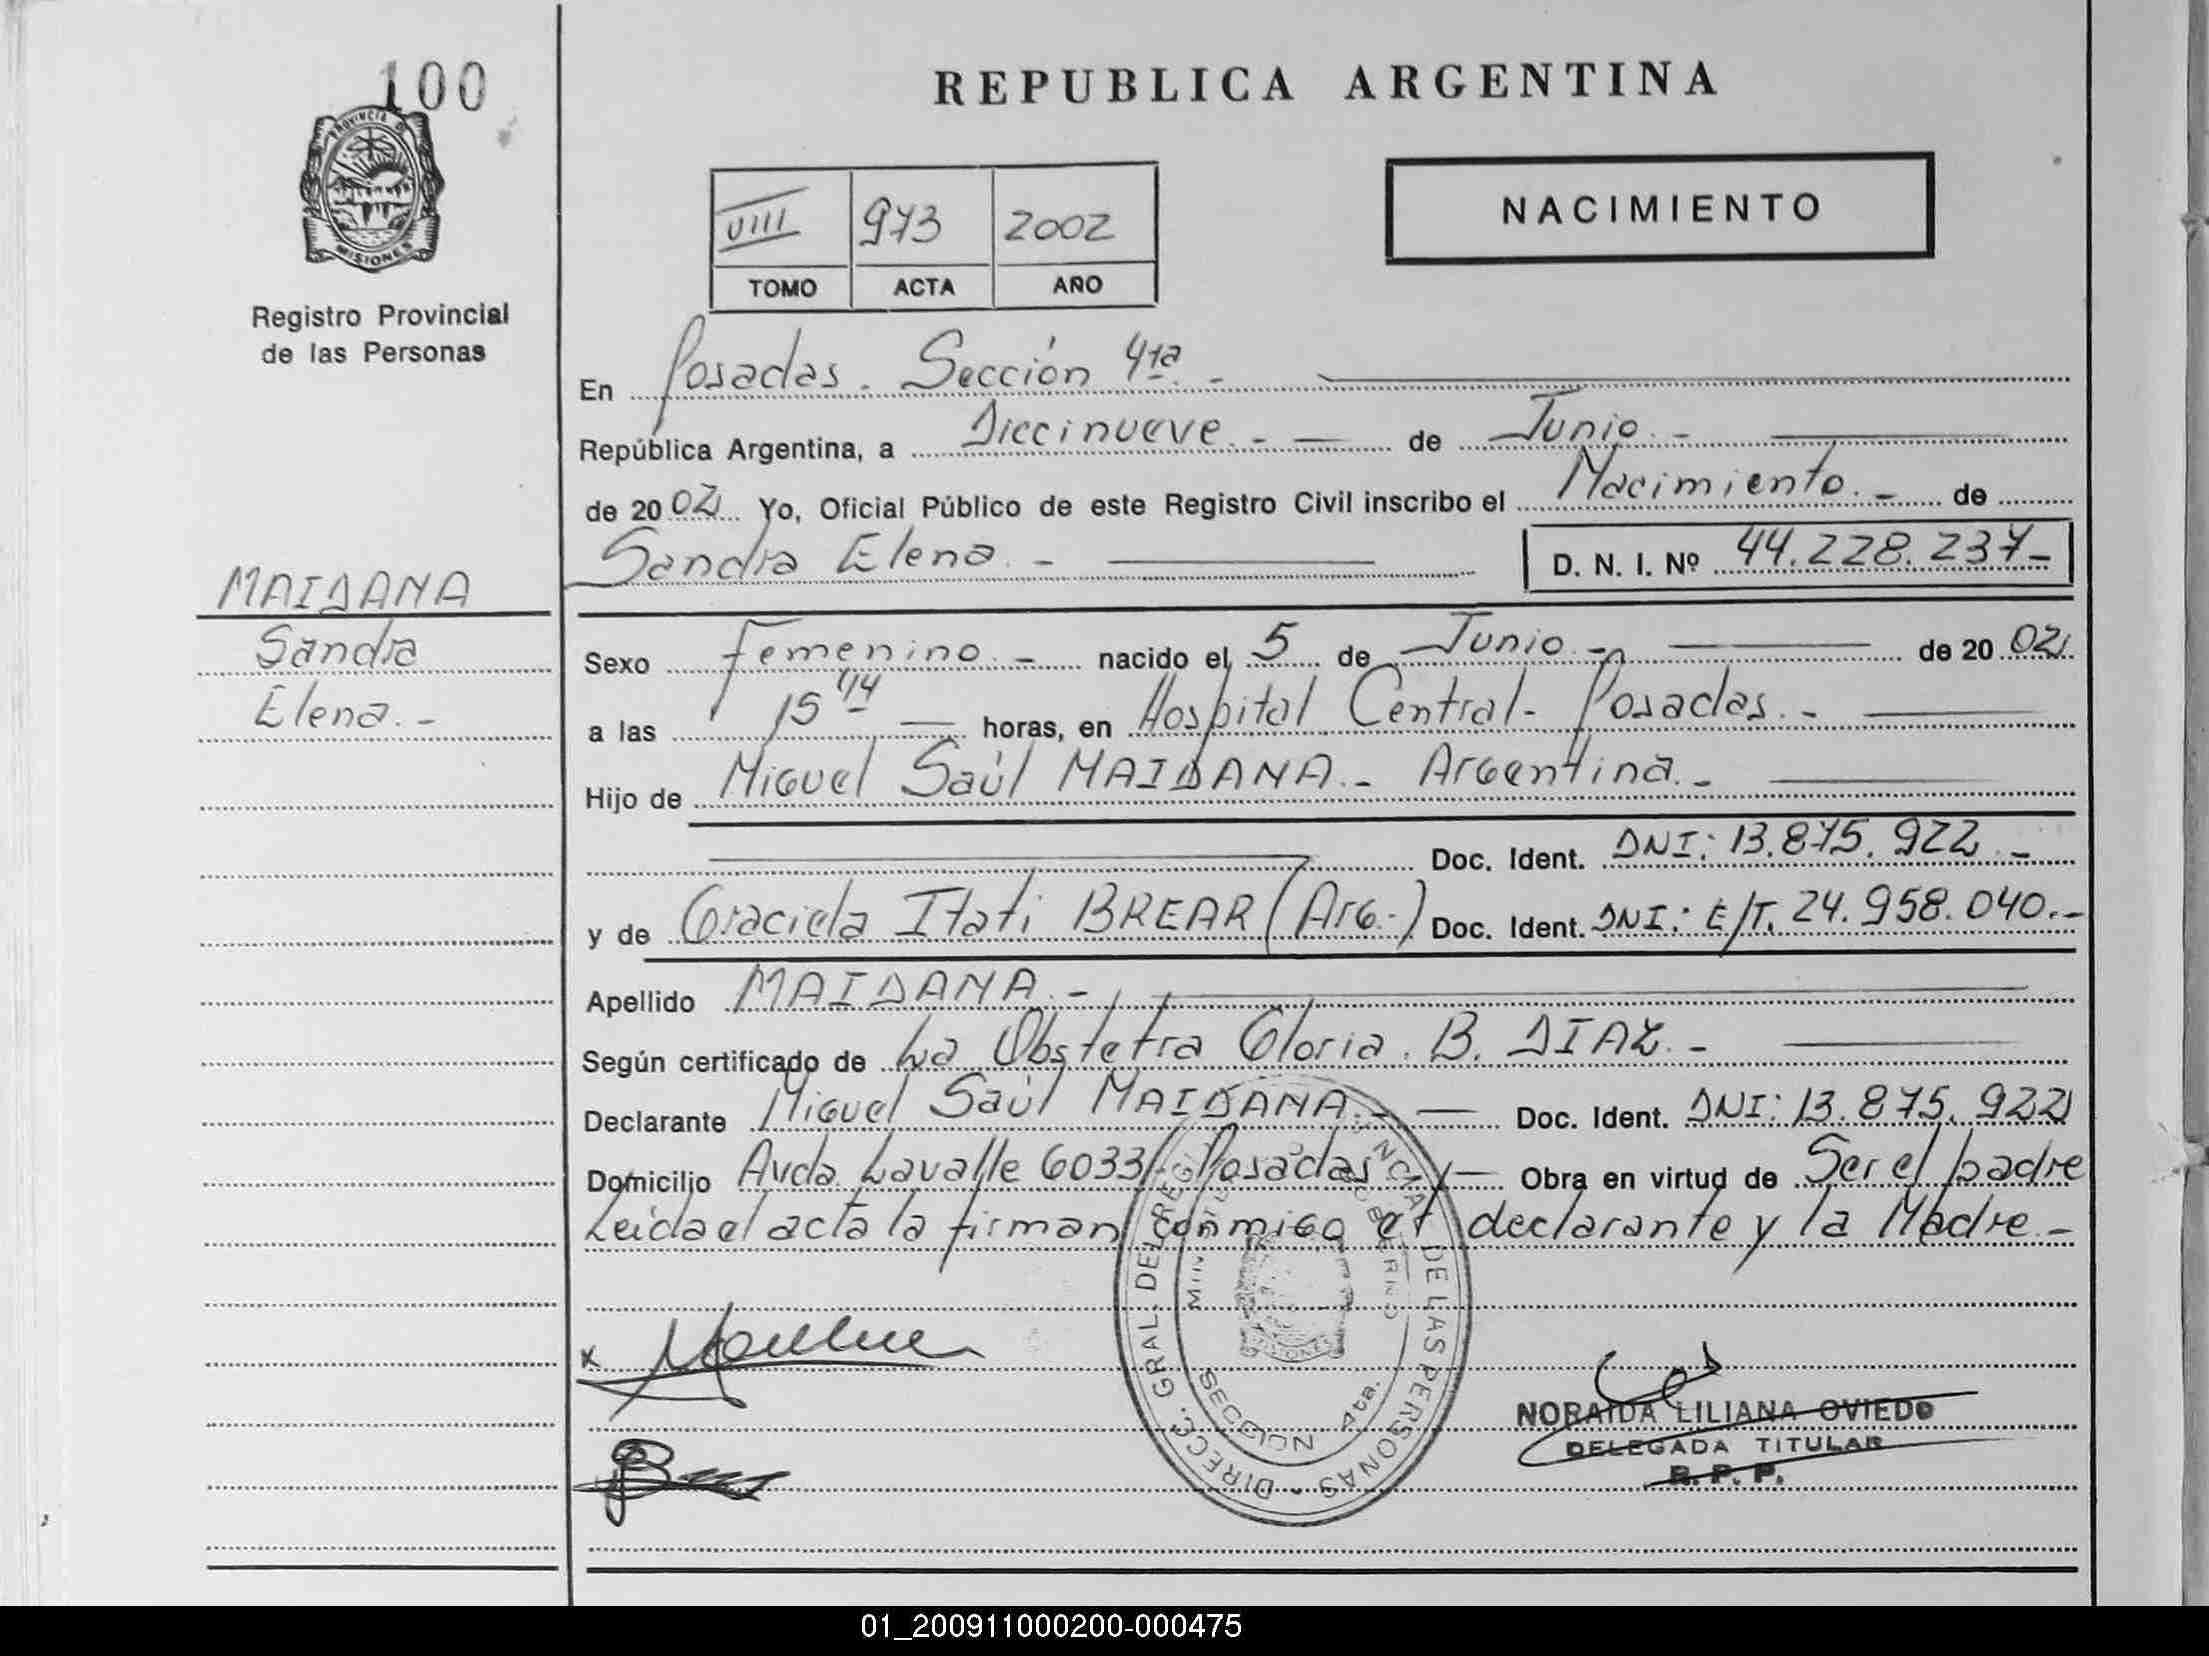 100
PROVINCIA D
MISIONES
Registro Provincial
de las Personas
MAIDANA
Sandra
Elena.-
REPUBLICA ARGENTINA
VIII 973 2002
TOMO ACTA AÑO
NACIMIENTO
En Posadas. Sección 4ta.-
República Argentina, a Diecinueve.- de Junio.-
de 2002 Yo, Oficial Público de este Registro Civil inscribo el Nacimiento.- de
Sandra Elena.- D. N. I. Nº 44.228.237-
Sexo Femenino.- nacido el 5 de Junio.- de 2002
a las 15 horas, en Hospital Central- Posadas.-
Hijo de Miguel Saúl MAIDANA.- Argentina.-
Doc. Ident. DNI: 13.875.922.-
y de Graciela Itati BREAR (Arg.-) Doc. Ident. DNI: E/T. 24.958.040.-
Apellido MAIDANA.-
Según certificado de La Obstetra Gloria. B. DIAZ.-
Declarante Miguel Saúl MAIDANA.- Doc. Ident. DNI: 13.875.922
Domicilio Avda. Lavalle 6033/- Posadas Obra en virtud de Ser el padre
Leida el acta la firman conmigo el declarante y la Madre.-
DIRECC. GRAL. DEL REGI NCIAL DE LAS PERSONAS -
SECCION 4ta.
MISIONES
NORAIDA LILIANA OVIEDO
DELEGADA TITULAR
R. P. P.
01_200911000200-000475